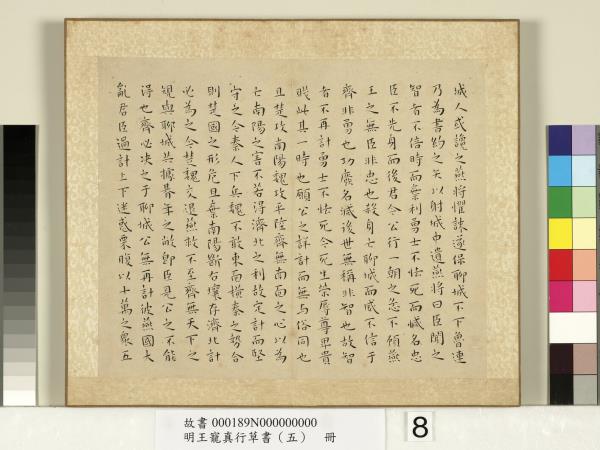 城人或讒之燕將懼誅遂保聊城不下魯連
乃為書約之矢以射城中遺燕將曰臣聞之
智者不倍時而棄利勇士不怯死而滅名忠
臣不先身而後君今公行一朝之忿不顧燕
王之無臣非忠也殺身亡聊城而威不信于
齊非勇也功廢名滅後世無稱非智也故智
者不再計勇士不怯死今死生榮辱尊卑貴
賤此其一時也願公之詳計而無与俗同也
且楚攻南陽魏攻平陸齊無南面之心以為
亡南陽之害不若得濟北之利故定計而堅
守之今秦人下兵魏不敢東面橫秦之勢合
則楚國之形危且棄南陽斷右壤存濟北計
必為之今楚魏交退燕救不至齊無天下之
規與聊城共據朞年之敝即臣見公之不能
得也齊必決之于聊城公無再計彼燕國大
亂君臣過計上下迷惑栗腹以十萬之衆五
故書 000189N000000000
明王寵真行草書（五） 冊
8